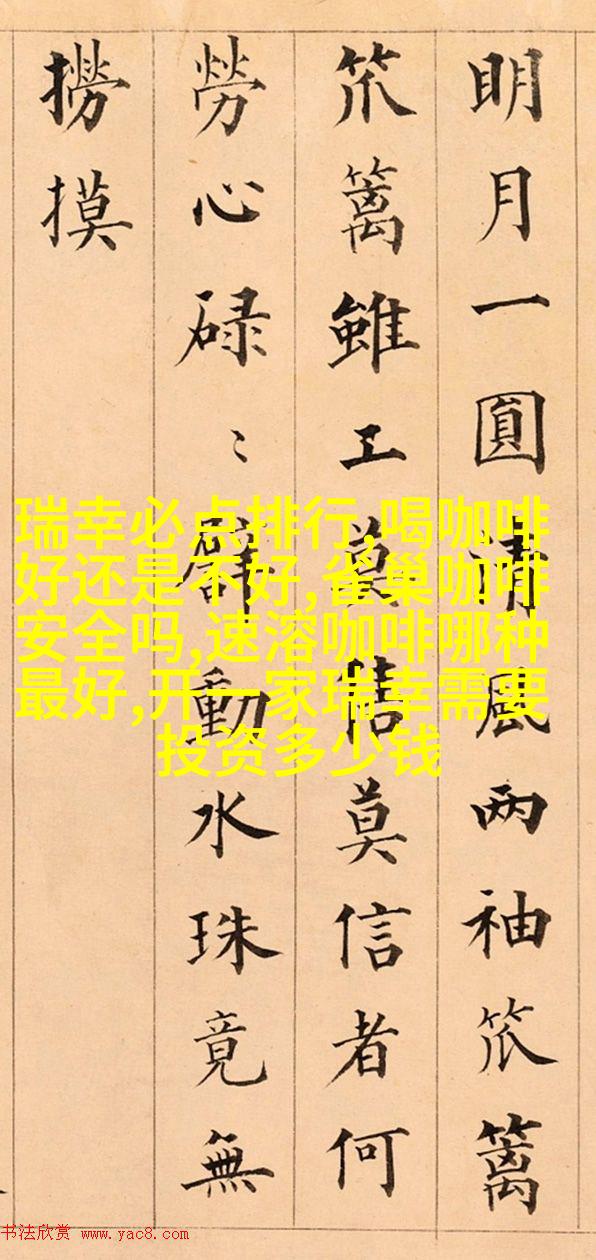 明月一圓清風两袖笊籬
笊籬雖工莫莫信者何
勞心碌〻劈動水珠竟無
撈摸
瑞幸必点排行,喝咖啡
好还是不好,雀巢咖啡
安全吗,速溶咖啡哪种
最好,开一家瑞幸需要
投资多少钱
书法欣赏 www.yac8.com